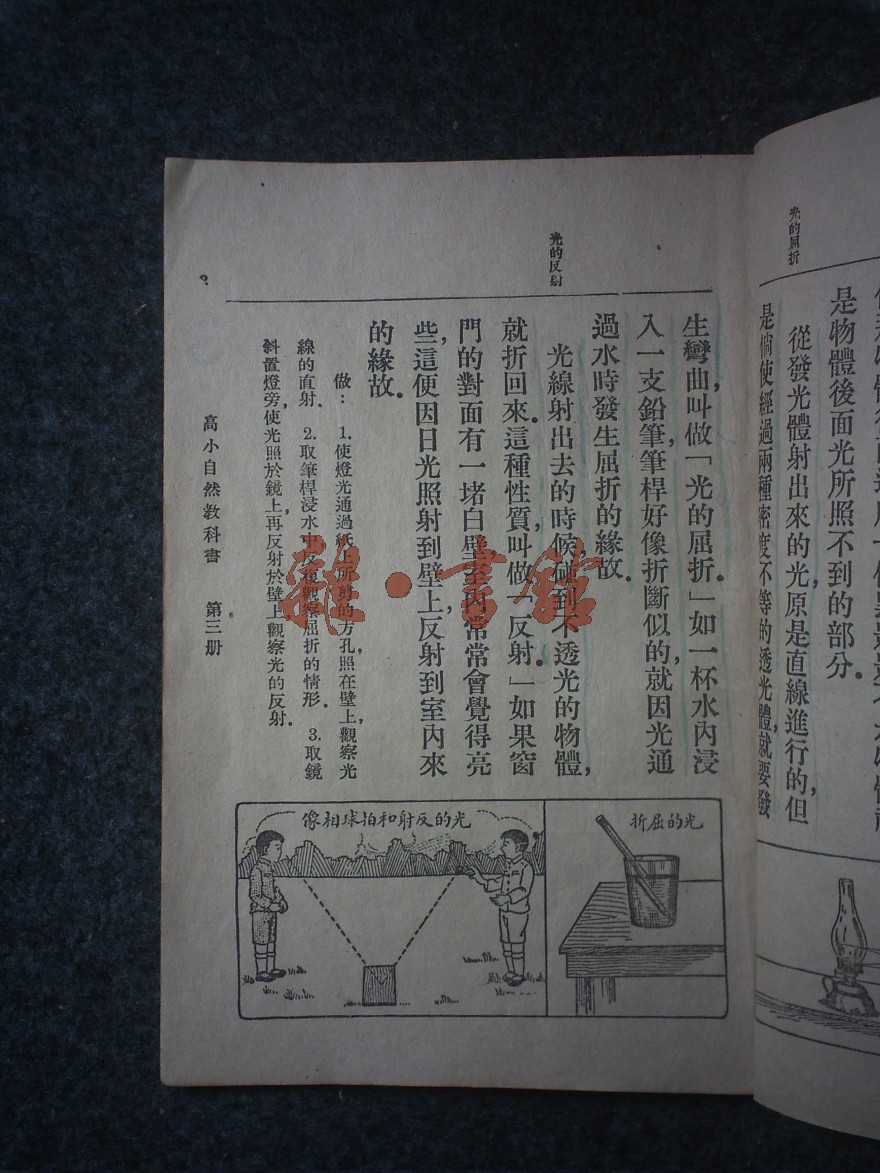 光的屈折
是物體後面光所照不到的部分．
從發光體射出來的光，原是直線進行的，但
是倘使經過兩種密度不等的透光體，就要發
光的反射
生彎曲，叫做「光的屈折．」如一杯水內，浸
入一支鉛筆，筆桿好像折斷似的，就因光通
過水時發生屈折的緣故．
光線射出去的時候，碰到不透光的物體，
就折回來．這種性質，叫做「反射．」如果窗
門的對面有一堵白壁，室內常常會覺得亮
些，這便因日光照射到壁上，反射到室內來
的緣故．
做： 1.使燈光通過紙上所剪的方孔，照在壁上，觀察光
線的直射． 2.取筆桿浸水中反復觀察屈折的情形． 3.取鏡
斜置燈旁，使光照於鏡上，再反射於壁上，觀察光的反射．
高小自然教科書 第三册
2
光的屈折
光的反射和拍球相像
雜·書館